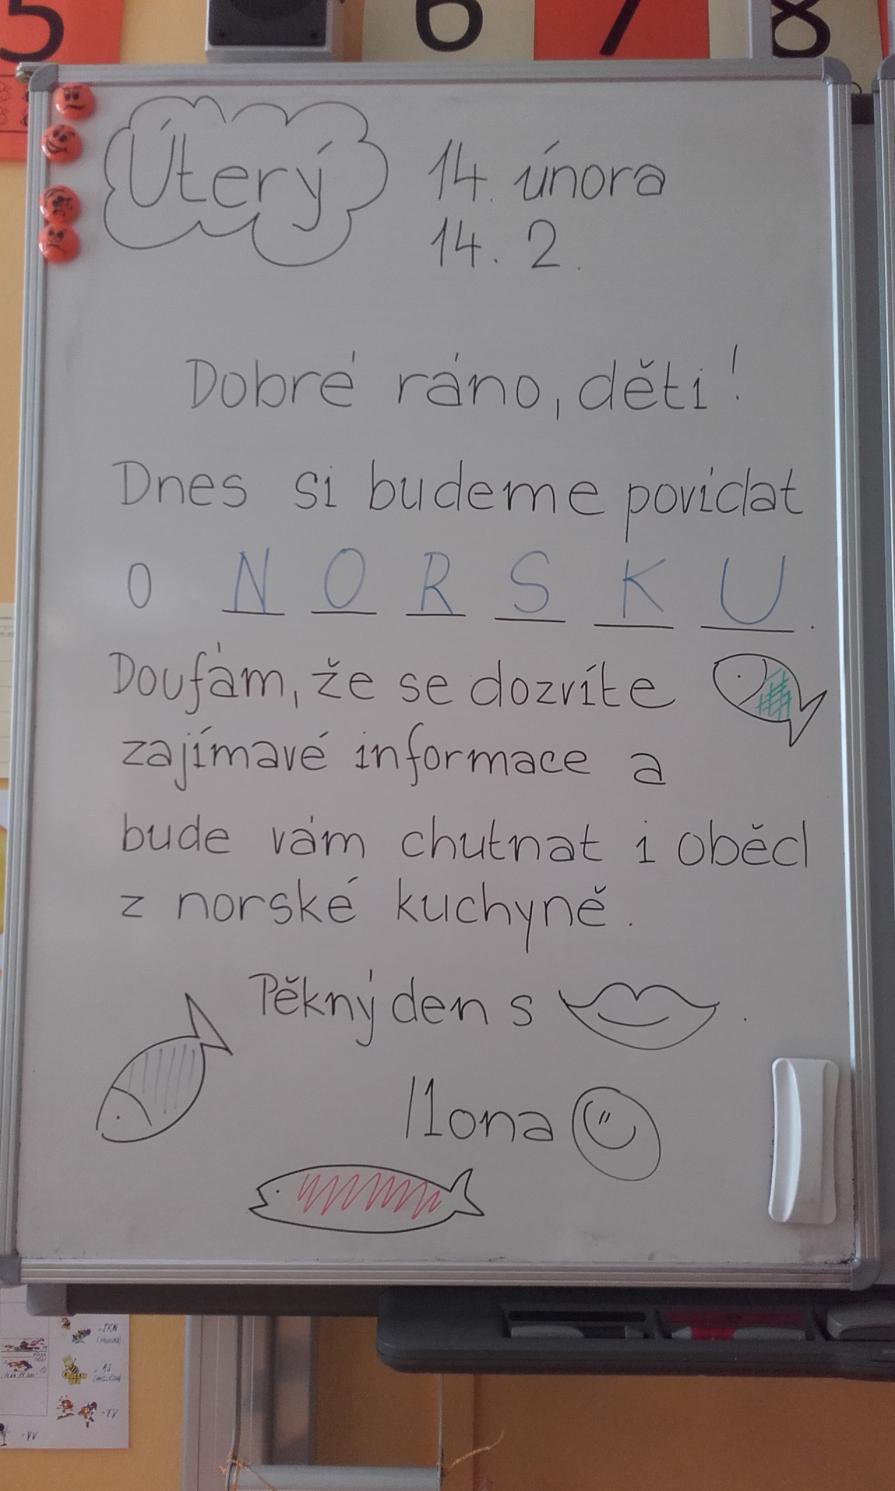 5 6 7 8
Úterý 14. února
14. 2.
Dobré ráno, děti!
Dnes si budeme povídat
o NORSKU.
Doufám, že se dozvíte
zajímavé informace a
bude vám chutnat i oběd
z norské kuchyně.
Pěkný den s .
Ilona